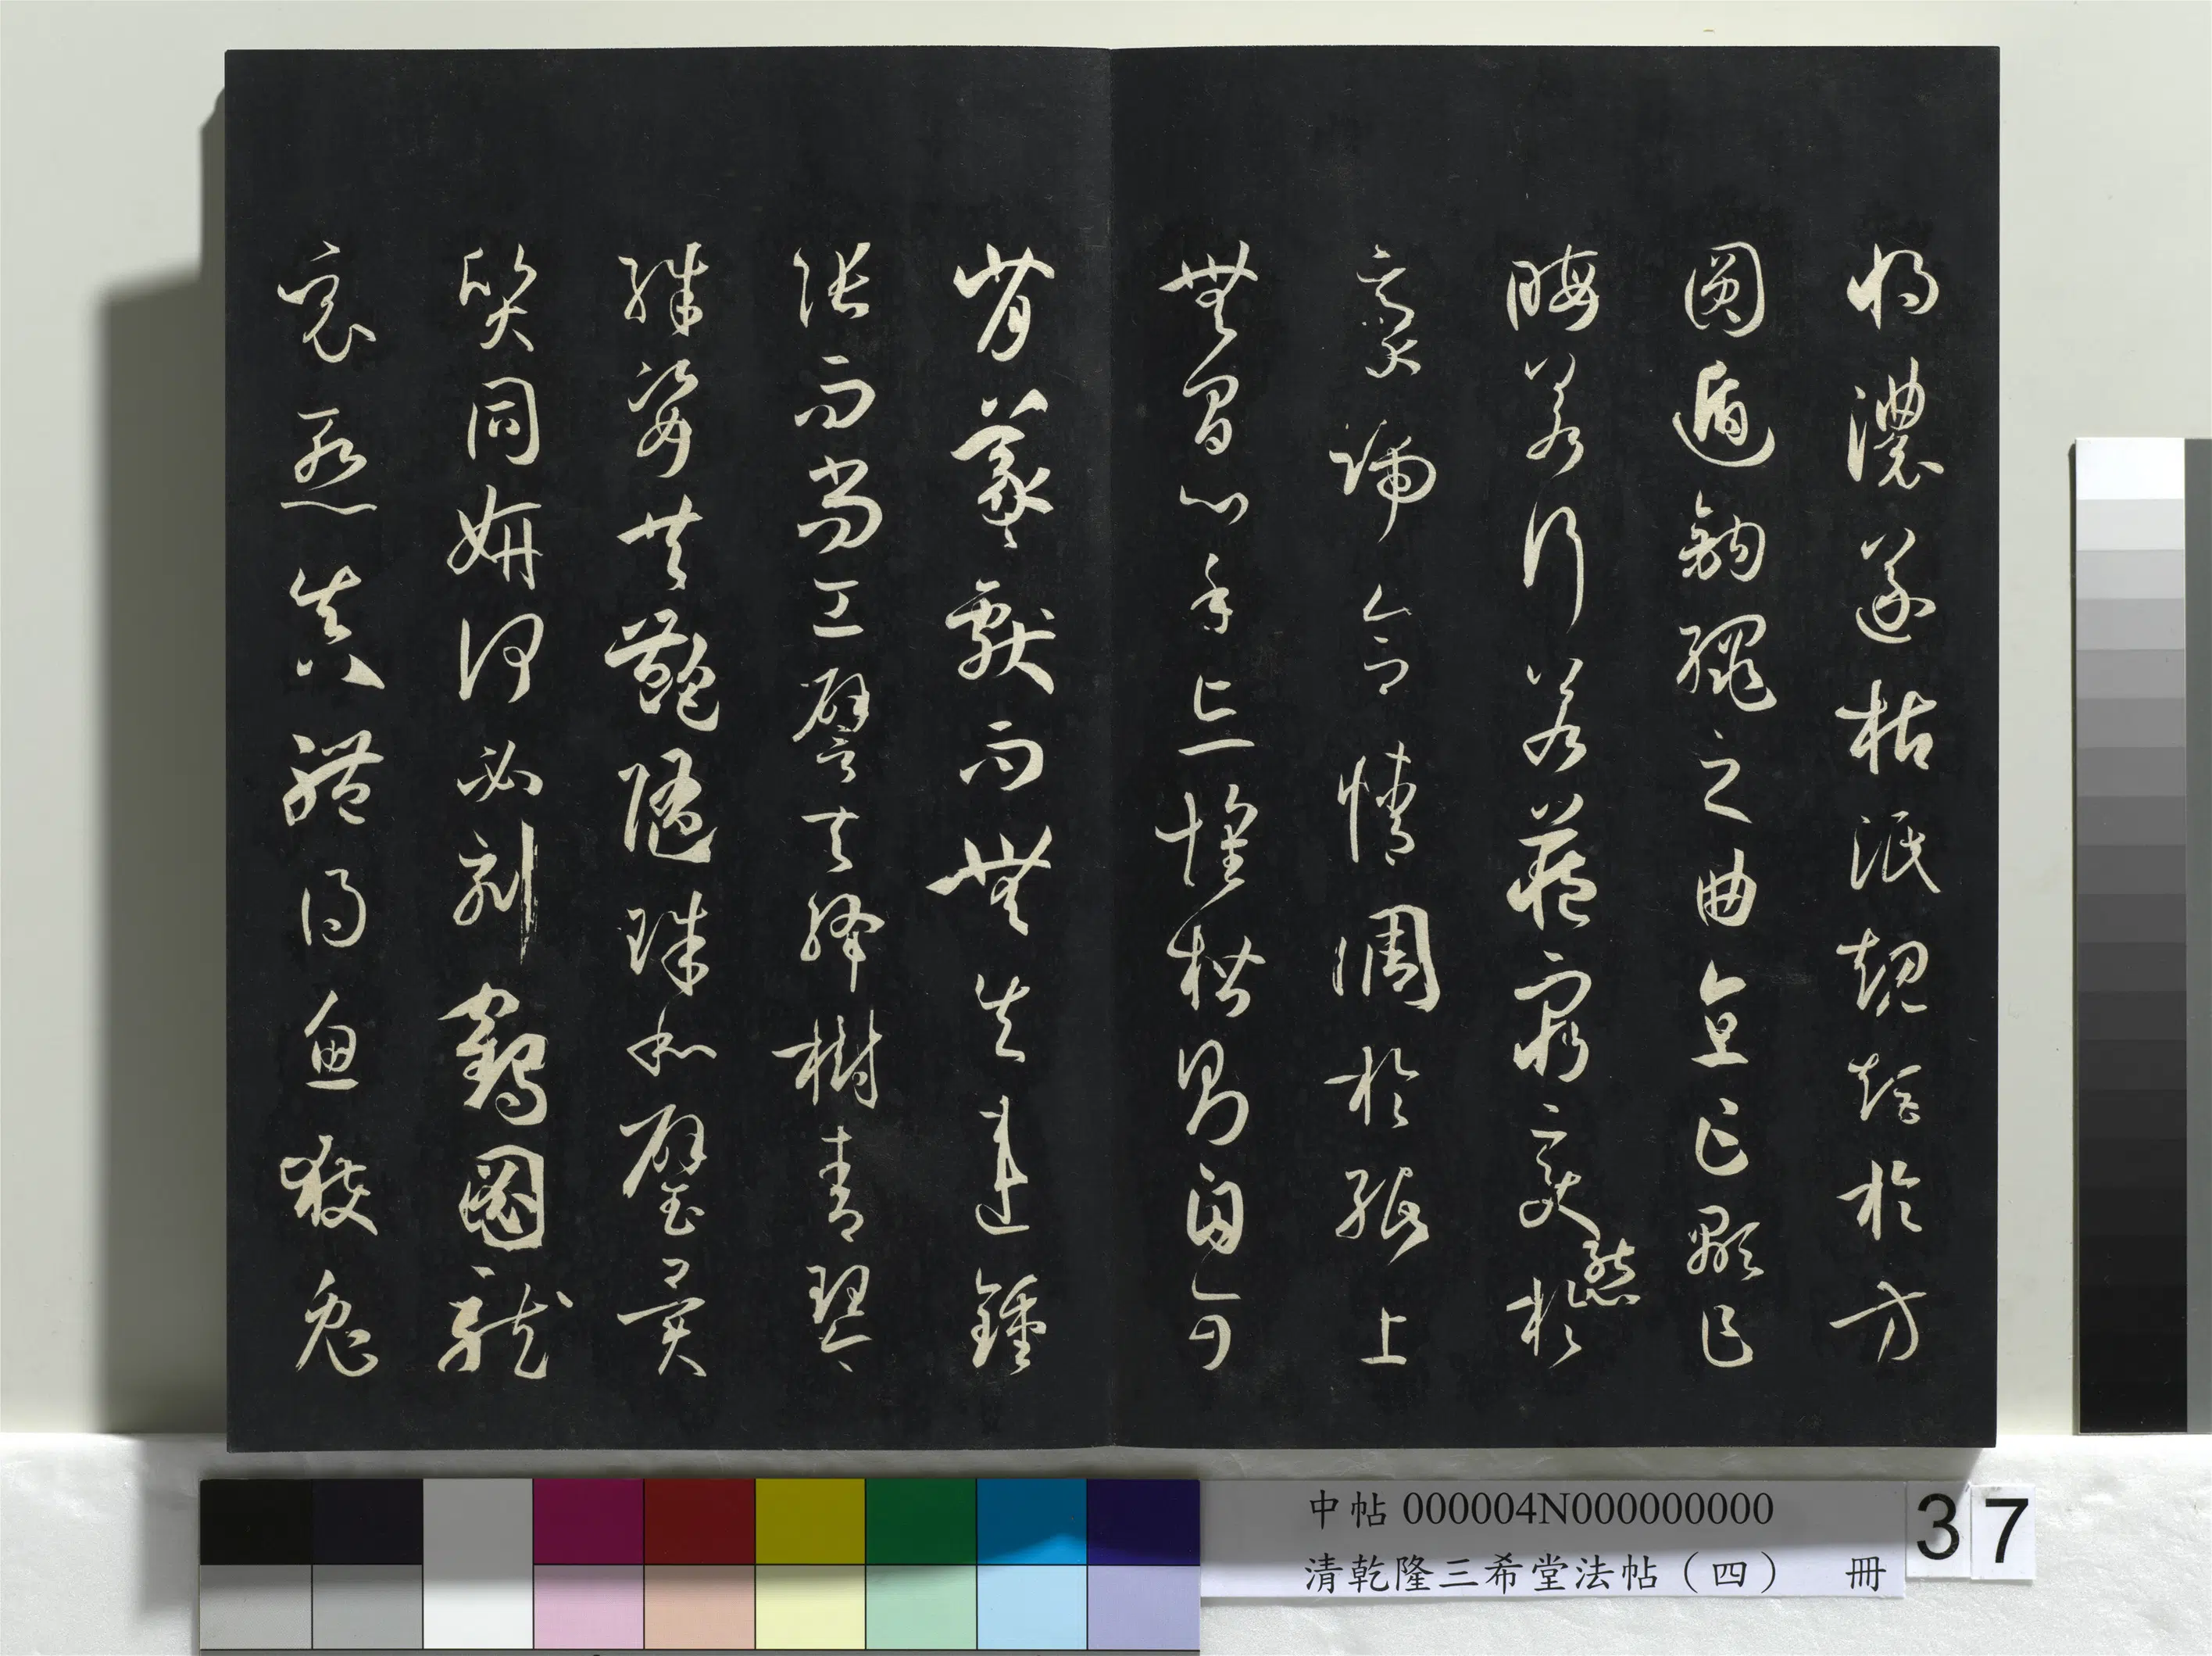 將濃遂枯泯規矩於方
圓遁鉤繩之曲直乍顯乍
晦若行若藏窮變態於
豪端合情調於紙上
無間心手忘懷楷則自可
背羲獻而無失違鍾
張而尚工譬夫絳樹青琴
殊姿共艷隨珠和璧異
質同妍何必刻鶴圖龍
竟慚真體得魚獲兔
中帖 000004N000000000
清乾隆三希堂法帖（四） 冊
37